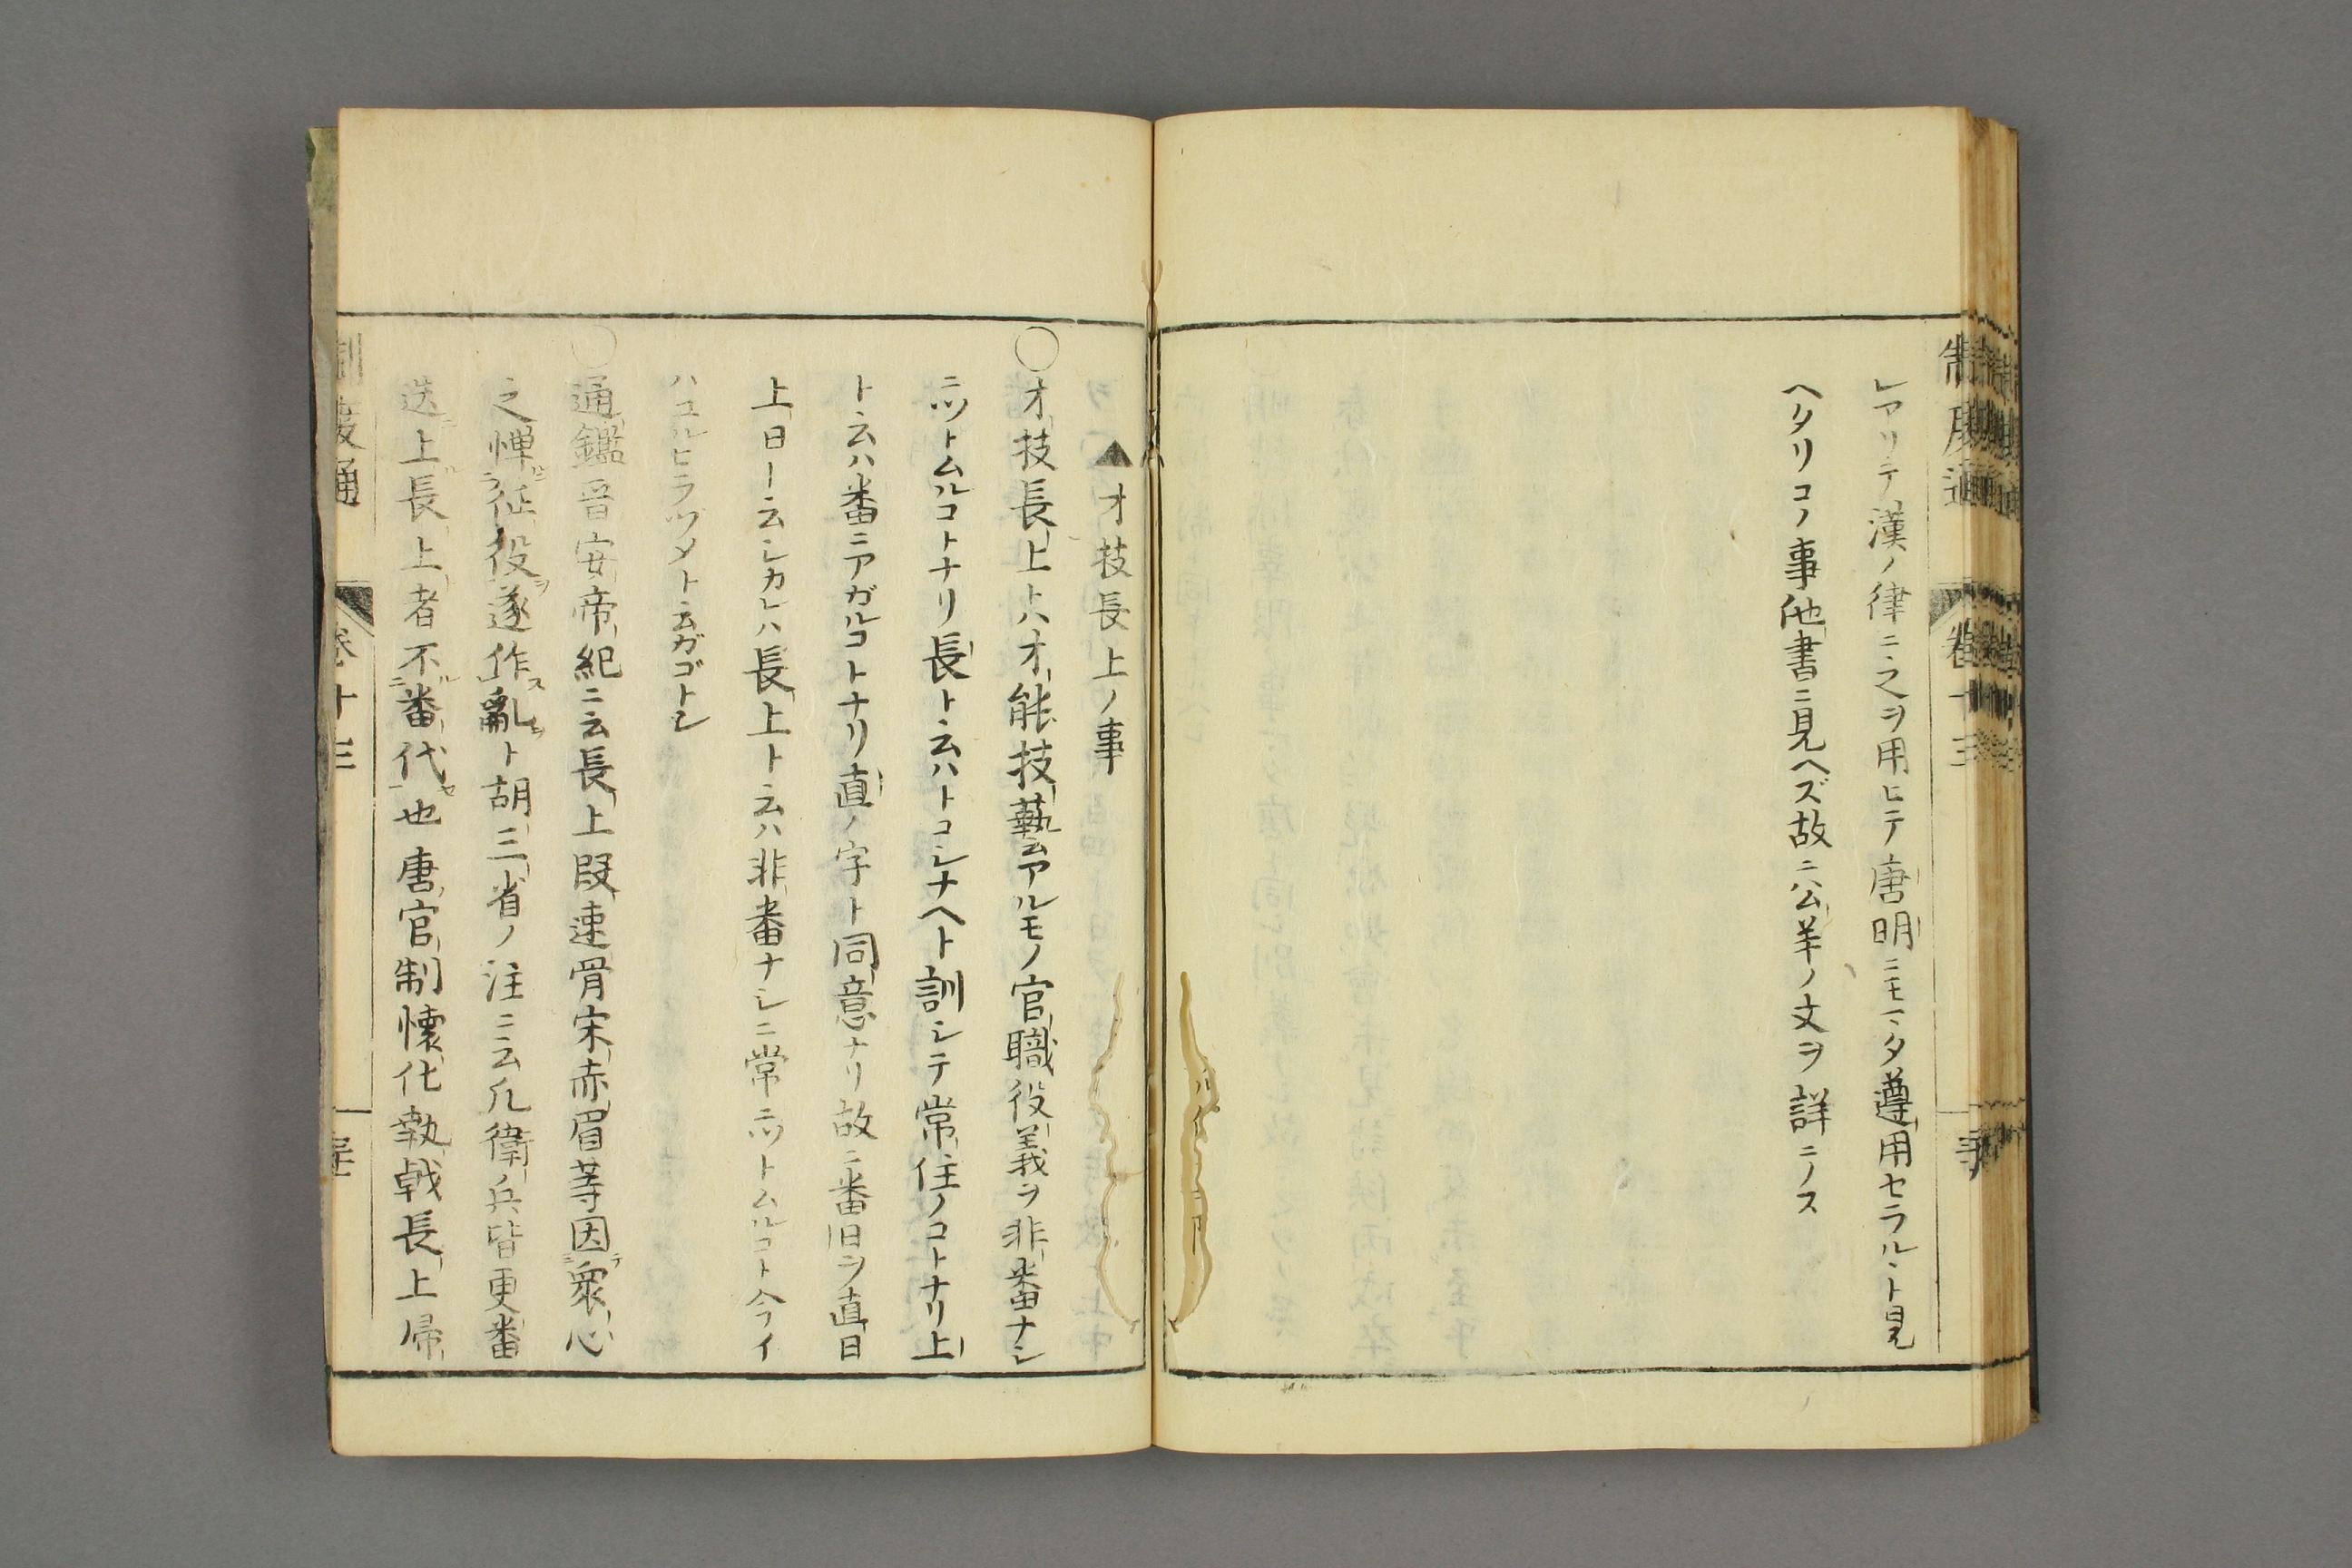 制度通
巻十三
レアリテ漢ノ律ニ之ヲ用ヒテ唐明ニモマタ遵用セラルヽト見
ヘタリコノ事他書ニ見ヘズ故ニ公羊ノ文ヲ詳ニノス
▲才技長上ノ事
○才技長上トハ才能技藝アルモノ官職役義ヲ非番ナシ
ニツトムルコトナリ長ト云ハトコシナヘト訓シテ常住ノコトナリ上
ト云ハ番ニアガルコトナリ直ノ字ト同意ナリ故ニ番旧ヲ直日
上日ト云シカレハ長上ト云ハ非番ナシニ常ニツトムルコト今イ
ハユルヒラヅメト云ガゴトシ
○通鑑晋安帝紀ニ云長上叚速骨宋赤眉等因衆心
之憚征役遂作亂ト胡三省ノ注ニ云凡衛兵皆更番
迭上長上者不番代也唐官制懐化執戟長上帰
制度通
巻十三